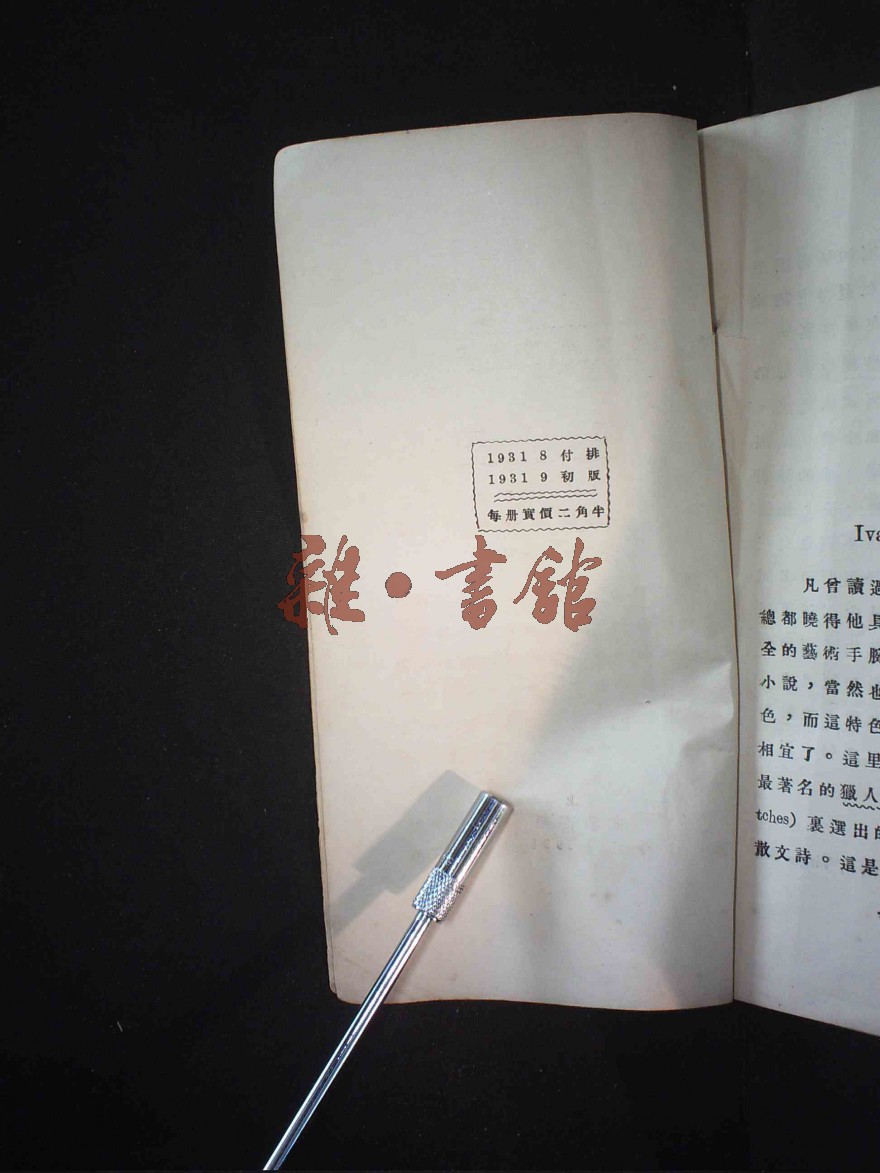 1931 8 付排
1931 9 初版
每册實價二角半
雜·書館
Iva
凡曾讀過
總都曉得他具
全的藝術手腕
小說，當然也
色，而這特色
相宜了。這里
最著名的獵人
tches) 裏選出的
散文詩。這是